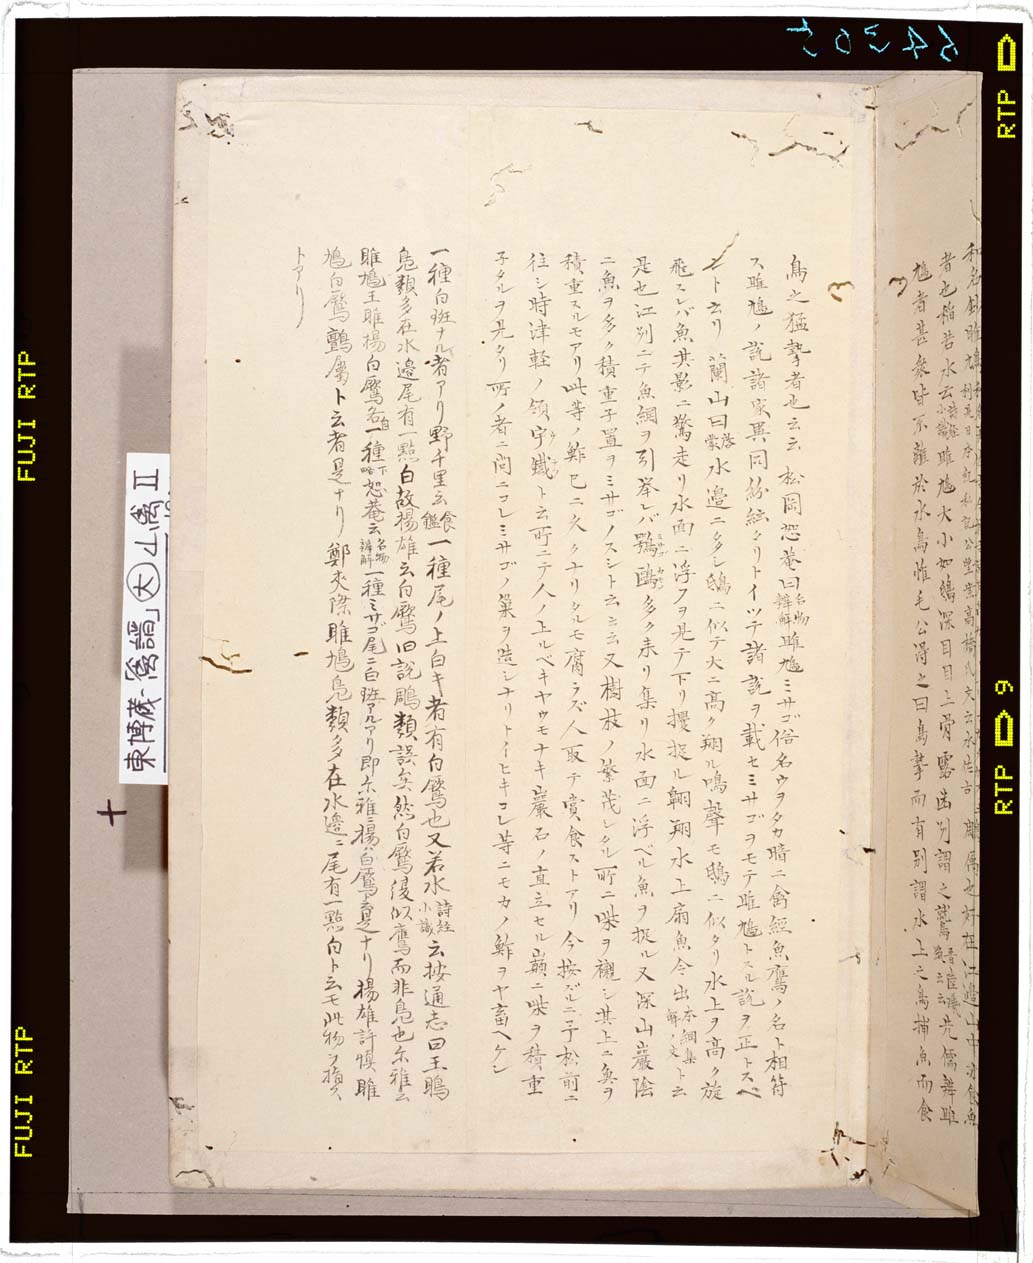 和名鈔雎鳩
者也稲若水云詩経小識雎鳩大小如鴟深目目上骨露出幽州謂之鷲
鳩者甚衆皆不離於水鳥惟毛公得之曰鳥摯而有別謂水上之鳥捕魚而食
鳥之猛摯者也云云 松岡恕菴曰名物辨解雎鳩ミサゴ俗名ウヲタカ暗ニ禽經魚鷹ノ名ト相符
ス雎鳩ノ説諸家異同紛紜タリトイツテ諸説ヲ載セミサゴヲモテ雎鳩トスル説ヲ正トスベ
シト云リ 蘭山曰啓蒙水邉ニ多シ鴟ニ似テ大ニ高ク翔ル鳴聲モ鴟ニ似タリ水上ヲ高ク旋
飛スレバ魚其影ニ驚走リ水面ニ浮フヲ見テ下リ攫捉ル翺翔水上扇魚令出本綱集解ノ文ト云
是也江州ニテ魚綱ヲ引挙レバ鶚鷗多ク来リ集リ水面ニ浮ベル魚ヲ捉ル又深山巖陰
ニ魚ヲ多ク積重子置ヲミサゴノスシト云云云又樹枝ノ繁茂シタル所ニ柴ヲ襯シ其上ニ魚ヲ
積重スルモアリ此等ノ鮓已ニ久クナリタルモ腐ラズ人取テ賞食ストアリ今按ズルニ予松前ニ
往シ時津軽ノ領宇鐵ト云所ニテ人ノ上ルベキヤウモナキ巖石ノ直立セル巓ニ柴ヲ積重
子タルヲ見タリ所ノ者ニ問ニコレミサゴノ巣ヲ造シナリトイヒキコレ等ニモカノ鮓ヲヤ畜ヘケン
一種白斑ナル者アリ野千里云食鑑一種尾ノ上白キ者有白鷹也又若水詩経小識云按通志曰王鴡
鳧類多在水邉尾有一點白故揚雄云白鷹旧説鵰類誤矣然白鷹復似鷹而非鳧也尓雅云
雎鳩王雎揚白鷹名一種下略恕菴云名物辨解一種ミサゴ尾ニ白斑アルアリ即尓雅ニ揚ハ白鷹ト云是ナリ揚雄許慎雎
鳩白鷹鸇屬ト云者是ナリ鄭夾漈雎鳩鳧類多在水邉ニ尾有一點白ト云モ此物ヲ指ス
トアリ
東博蔵-「禽譜」大 山禽 II
64305
RTP
RTP 9
FUJI RTP
FUJI RTP